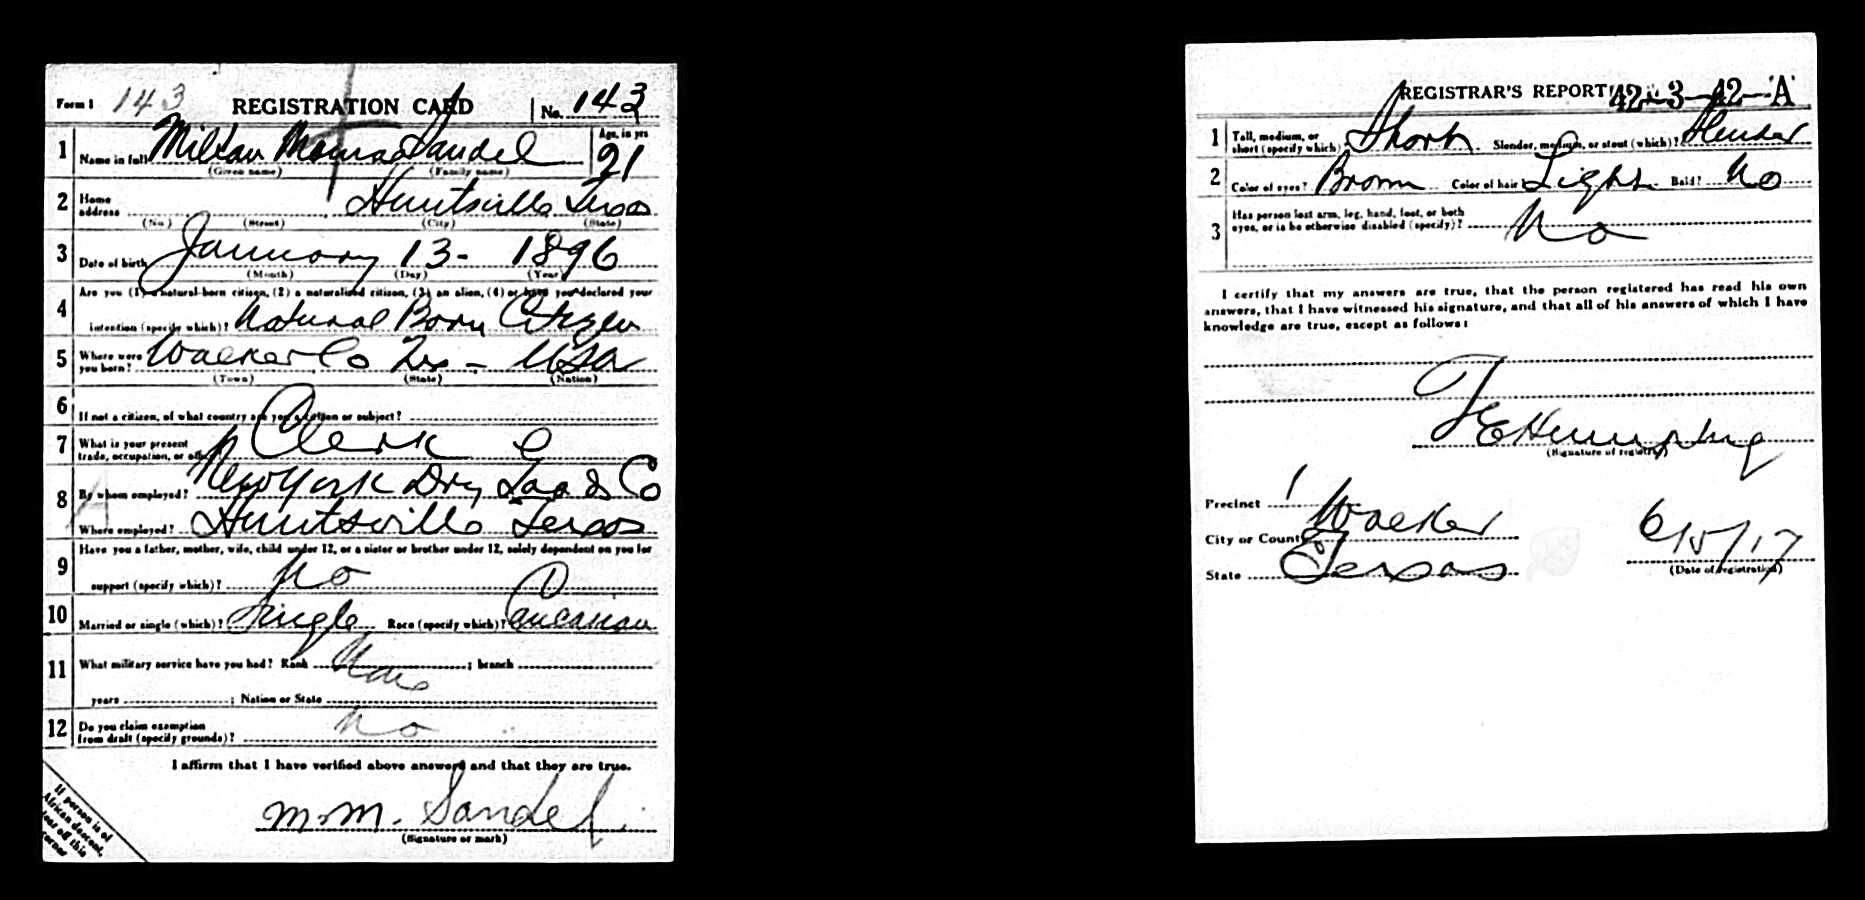 Form 1 143 REGISTRATION CARD No. 143
1 Name in full Milton Monroe Sandel Age, in yrs 21
(Given name) (Family name)
2 Home address Huntsville Texas
(No.) (Street) (City) (State)
3 Date of birth January 13 - 1896
(Month) (Day) (Year)
4 Are you (1) a natural-born citizen, (2) a naturalized citizen, (3) an alien, (4) or have you declared your
intention (specify which)? Natural Born Citizen
5 Where were you born? Walker Co Tex - USA
(Town) (State) (Nation)
6 If not a citizen, of what country are you a citizen or subject?
7 What is your present trade, occupation, or office? Clerk
8 By whom employed? New York Dry Goods Co
Where employed? Huntsville Texas
9 Have you a father, mother, wife, child under 12, or a sister or brother under 12, solely dependent on you for
support (specify which)? No
10 Married or single (which)? Single Race (specify which)? Caucasian
11 What military service have you had? Rank None ; branch
years ; Nation or State
12 Do you claim exemption from draft (specify grounds)? No
I affirm that I have verified above answers and that they are true.
M. M. Sandel
(Signature or mark)
If person is of
African descent,
tear off this
corner
REGISTRAR'S REPORT 42-3-42-A
1 Tall, medium, or short (specify which) Short Slender, medium, or stout (which)? Slender
2 Color of eyes? Brown Color of hair? Light Bald? No
3 Has person lost arm, leg, hand, foot, or both eyes, or is he otherwise disabled (specify)? No
I certify that my answers are true, that the person registered has read his own
answers, that I have witnessed his signature, and that all of his answers of which I have
knowledge are true, except as follows:
T E Humphrey
(Signature of registrar)
Precinct 1
City or County Walker 6/5/17
State Texas (Date of registration)